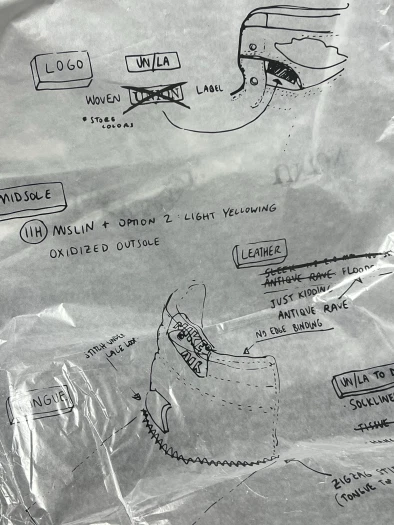 LOGO
UN/LA
WOVEN UNION LABEL
* STORE COLORS
MIDSOLE
11H MSLIN + OPTION 2: LIGHT YELLOWING
OXIDIZED OUTSOLE
LEATHER
ANTIQUE RAVE
JUST KIDDING
ANTIQUE RAVE
NO EDGE BINDING
STITCH UNDER
LACE LOOP
TONGUE
UN/LA TO D
SOCKLINE
TISSUE
ZIGZAG STI
(TONGUE TO